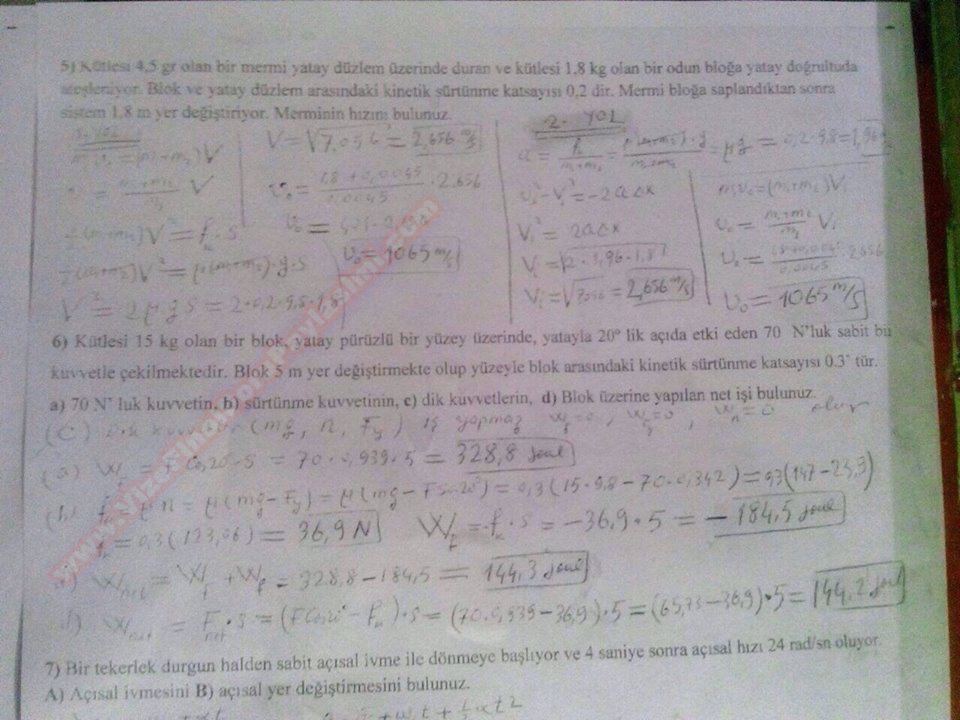 5) Kütlesi 4,5 gr olan bir mermi yatay düzlem üzerinde duran ve kütlesi 1,8 kg olan bir odun bloğa yatay doğrultuda
ateşleniyor. Blok ve yatay düzlem arasındaki kinetik sürtünme katsayısı 0,2 dir. Mermi bloğa saplandıktan sonra
sistem 1,8 m yer değiştiriyor. Merminin hızını bulunuz.
1. YOL
m₁v₀ = (m₁+m₂)V
V
½(m₁+m₂)V² = fₖ·s
½(m₁+m₂)V² = μ(m₁+m₂)·g·s
V² = 2μgs = 2·0,2·9,8·1,8
V = √7,056 = 2,656 m/s
v₀ = 1,8+0,0045 / 0,0045 · 2,656
v₀ =
v₀ = 1065 m/s
2. YOL
a = fₖ / m₁+m₂ = μ(m₁+m₂)·g / m₁+m₂ = μg = 0,2·9,8 = 1,96
v₂² - V₁² = -2aΔx
V₁² = 2aΔx
V₁ = √2·1,96·1,8
V₁ = √7,056 = 2,656 m/s
m₁v₀ = (m₁+m₂)V₁
v₀ = m₁+m₂ / m₁ V₁
v₀ = 1,8+0,0045 / 0,0045 · 2,656
v₀ = 1065 m/s
6) Kütlesi 15 kg olan bir blok, yatay pürüzlü bir yüzey üzerinde, yatayla 20° lik açıda etki eden 70 N'luk sabit bir
kuvvetle çekilmektedir. Blok 5 m yer değiştirmekte olup yüzeyle blok arasındaki kinetik sürtünme katsayısı 0.3' tür.
a) 70 N' luk kuvvetin, b) sürtünme kuvvetinin, c) dik kuvvetlerin, d) Blok üzerine yapılan net işi bulunuz.
(c) Dik kuvvetler (mg, n, Fy) iş yapmaz W = 0, W = 0, Wn = 0 olur
(a) W_F = F Cos20·s = 70·0,939·5 = 328,8 joule
(b) fₖ = μn = μ(mg-Fy) = μ(mg-F sin20°) = 0,3(15·9,8-70·0,342) = 0,3(147-23,9)
fₖ = 0,3(123,06) = 36,9 N W_f = -fₖ·s = -36,9·5 = -184,5 joule
d) W_net = W_F + W_f = 328,8-184,5 = 144,3 joule
d) W_net = F_net·s = (F Cos20°-fₖ)·s = (70·0,939-36,9)·5 = (65,73-36,9)·5 = 144,2 joule
7) Bir tekerlek durgun halden sabit açısal ivme ile dönmeye başlıyor ve 4 saniye sonra açısal hızı 24 rad/sn oluyor.
A) Açısal ivmesini B) açısal yer değiştirmesini bulunuz.